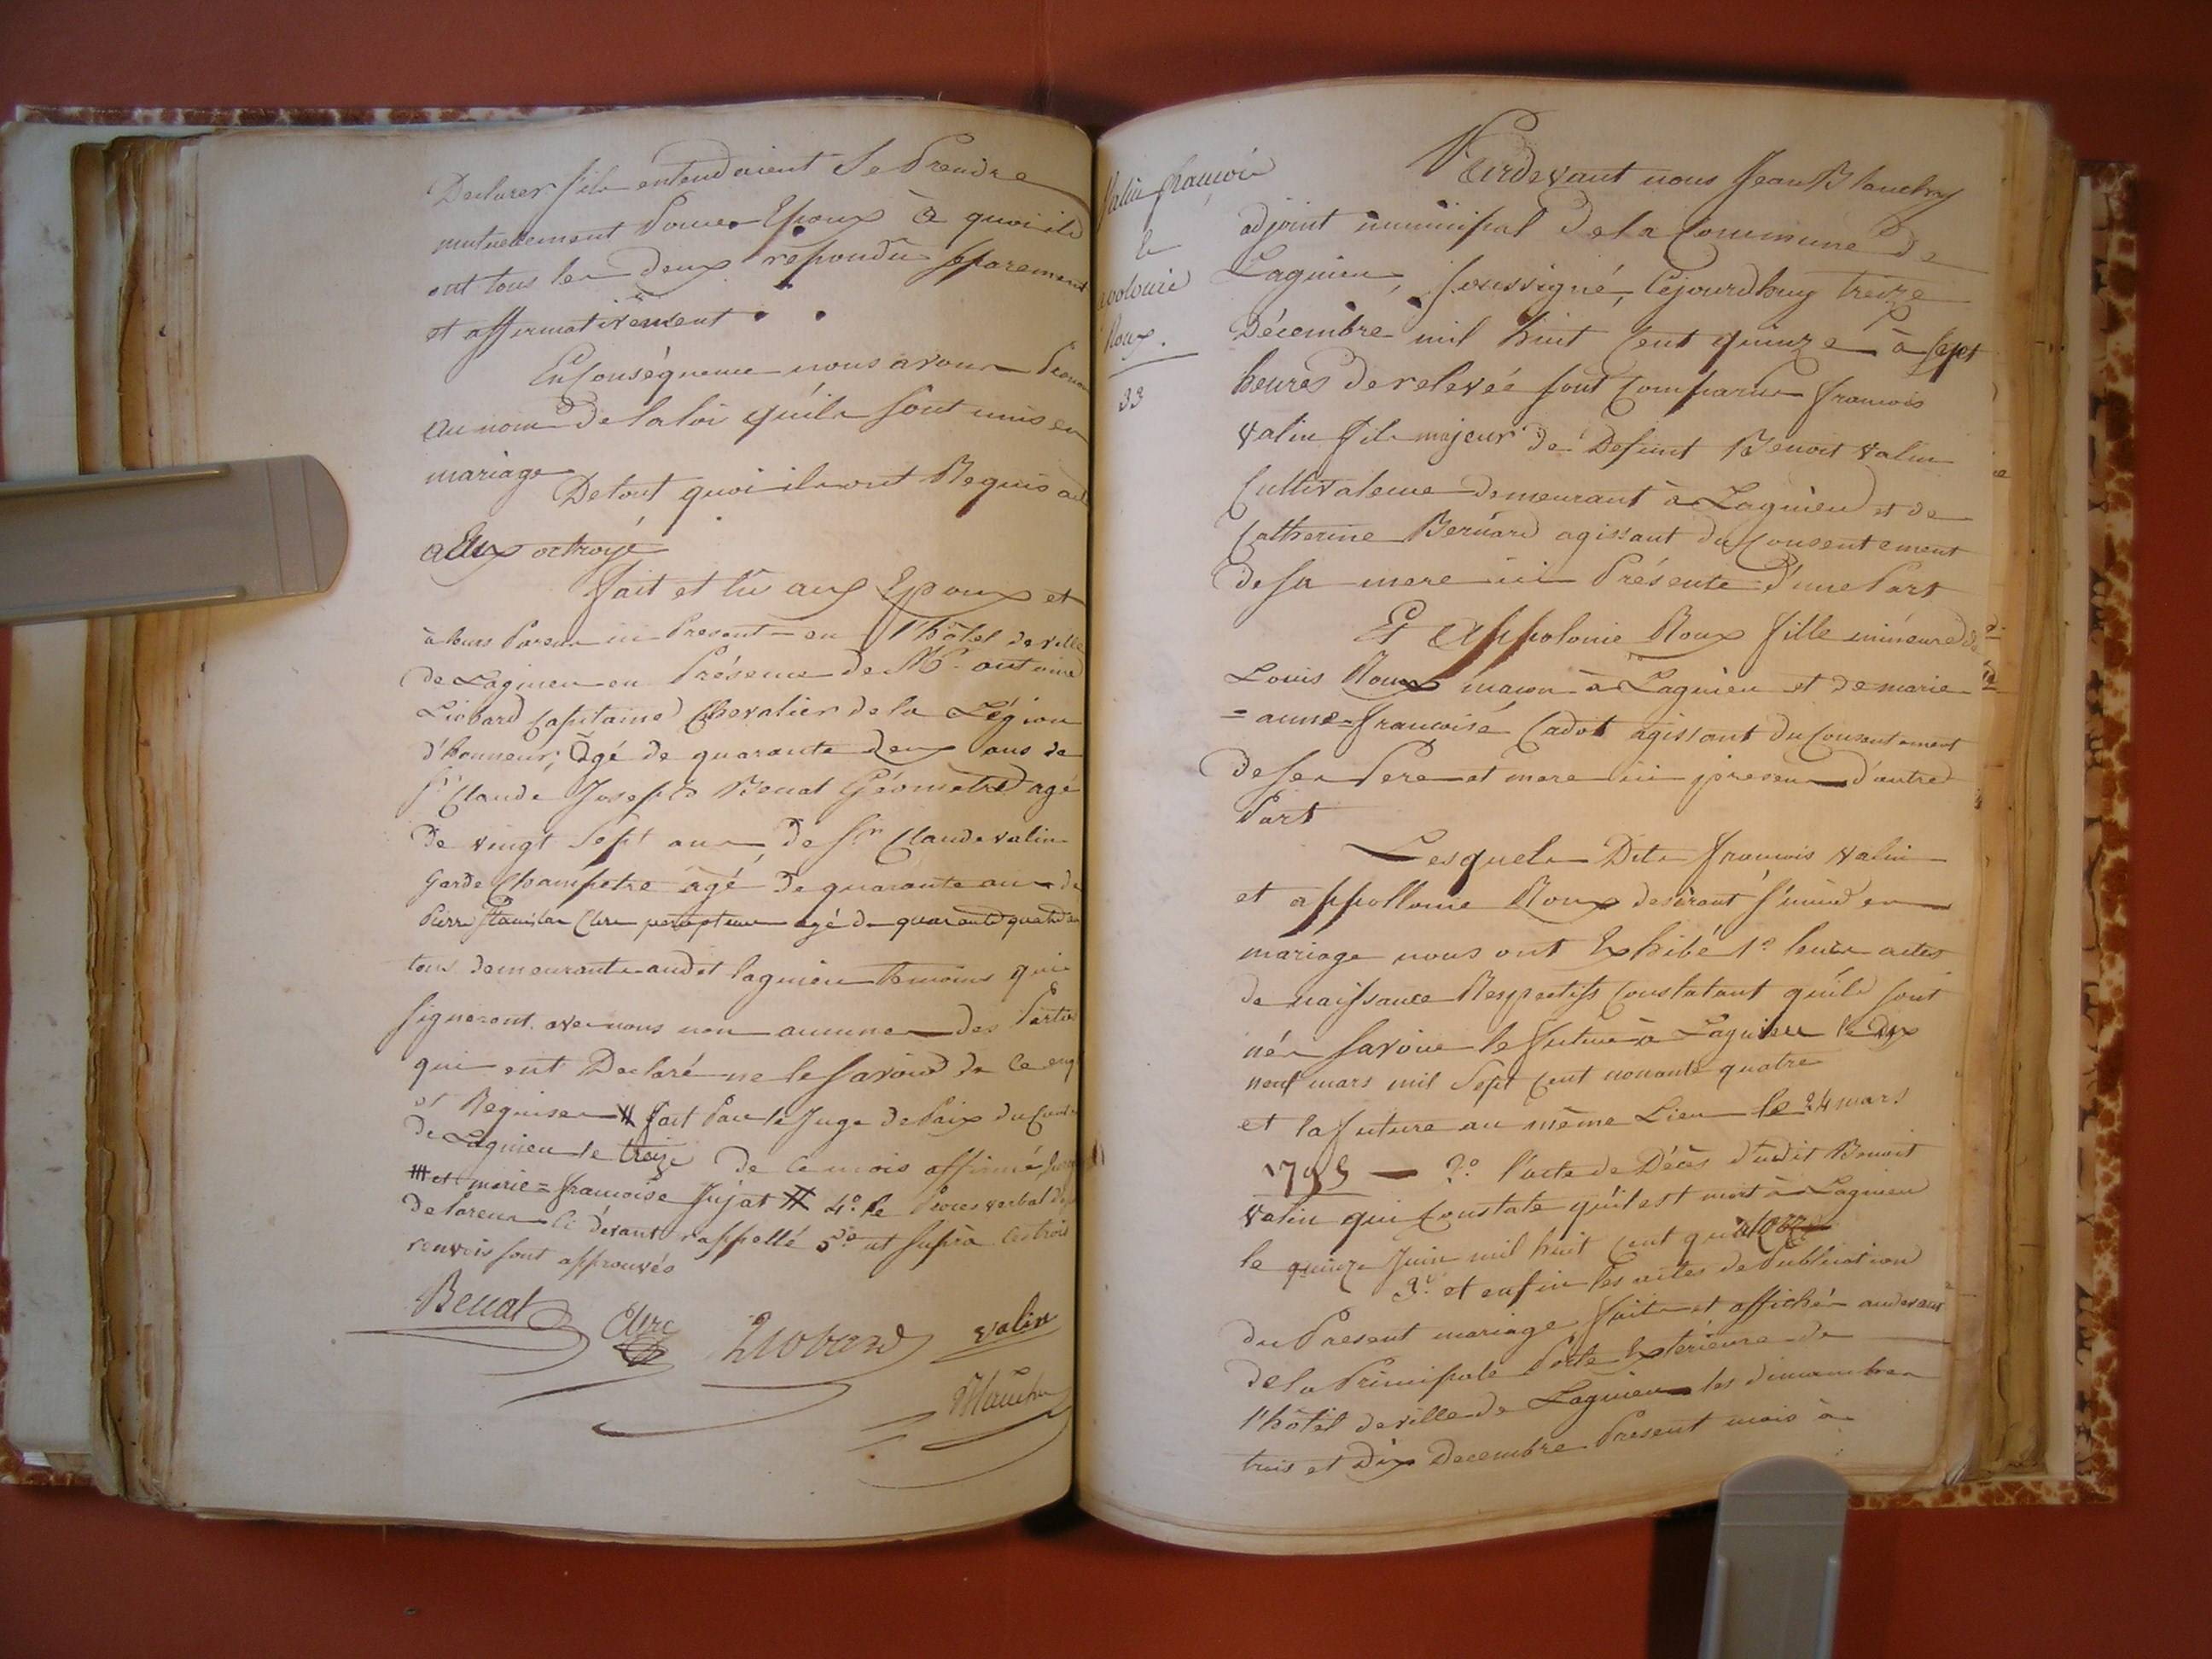 Declarer s'ils entendaient se Prendre
mutuellement Pour Epoux à quoi ils
ont tous les deux repondu separement
et affirmativement
En Conséquence nous avons
au nom de la loi qu'ils sont unis en
mariage
De tout quoi ils ont Requis
a Eux octroyé
fait et lu aux Epoux et
à leurs Parens ici Present en l'hôtel de ville
de Lagnieu en Présence de Mr. antoine
Liobard Capitaine Chevalier de la Légion
d'honneur, Agé de quarante deux ans de
Sr Claude Joseph Benat Géomètre agé
De vingt Sept ans De Sr Claude valin
Garde Champetre agé De quarante ans de
Pierre Stanislas Clerc percepteur agé de quarante quatre ans
tous demeurants audit lagnieu temoins qui
signeront avec nous non aucunes des Parties
qui ont Declaré ne le savoir de ce enq
et Requises # fait Par le Juge de Paix du Canton
de Lagnieu le treize de ce mois affirmé
# et marie=francoise Jujat # 4o. le Proces verbal
de Parens Ci devant rappellé 5o ut supra les trois
renvois sont approuvés
Benat Clerc Liobard valin
Blanchy
Valin francois
&
Roux.
33
Pardevant nous Jean Blanchy
adjoint municipal De la Commune de
Lagnieu, soussigné, Cejourdhuy treize
Décembre mil huit Cent quinze à sept
heures de relevée sont Comparus francois
valin fils majeur de Defunt Benoit valin
Cultivateur demeurant à Lagnieu et de
Catherine Bernard agissant du Consentement
de sa mere ici Présente d'une Part
Et Appolonie Roux fille mineure de
Louis Roux macon à Lagnieu et de marie
=anne=francoise Cadot agissant du Consentement
de ses Pere et mere ici presens d'autre
Part
Lesquels Dits francois valin
et appollonie Roux desirant s'unir en
mariage nous ont Exhibé 1o leurs actes
de naissance Respectifs Constatant qu'ils sont
nés savoir le futur à Lagnieu le dix
neuf mars mil Sept Cent nonante quatre
et la future au même Lieu le 24 mars
1795 — 2o l'acte de Décès dudit Benoit
valin qui Constate qu'il est mort à Lagnieu
le quinze Juin mil huit Cent quatorze
3o. et enfin les actes de Publication
du Present mariage faits et affichés audevant
de la Principale Porte Exterieure de
l'hôtel de ville de Lagnieu les dimanches
trois et Dix Decembre Present mois à